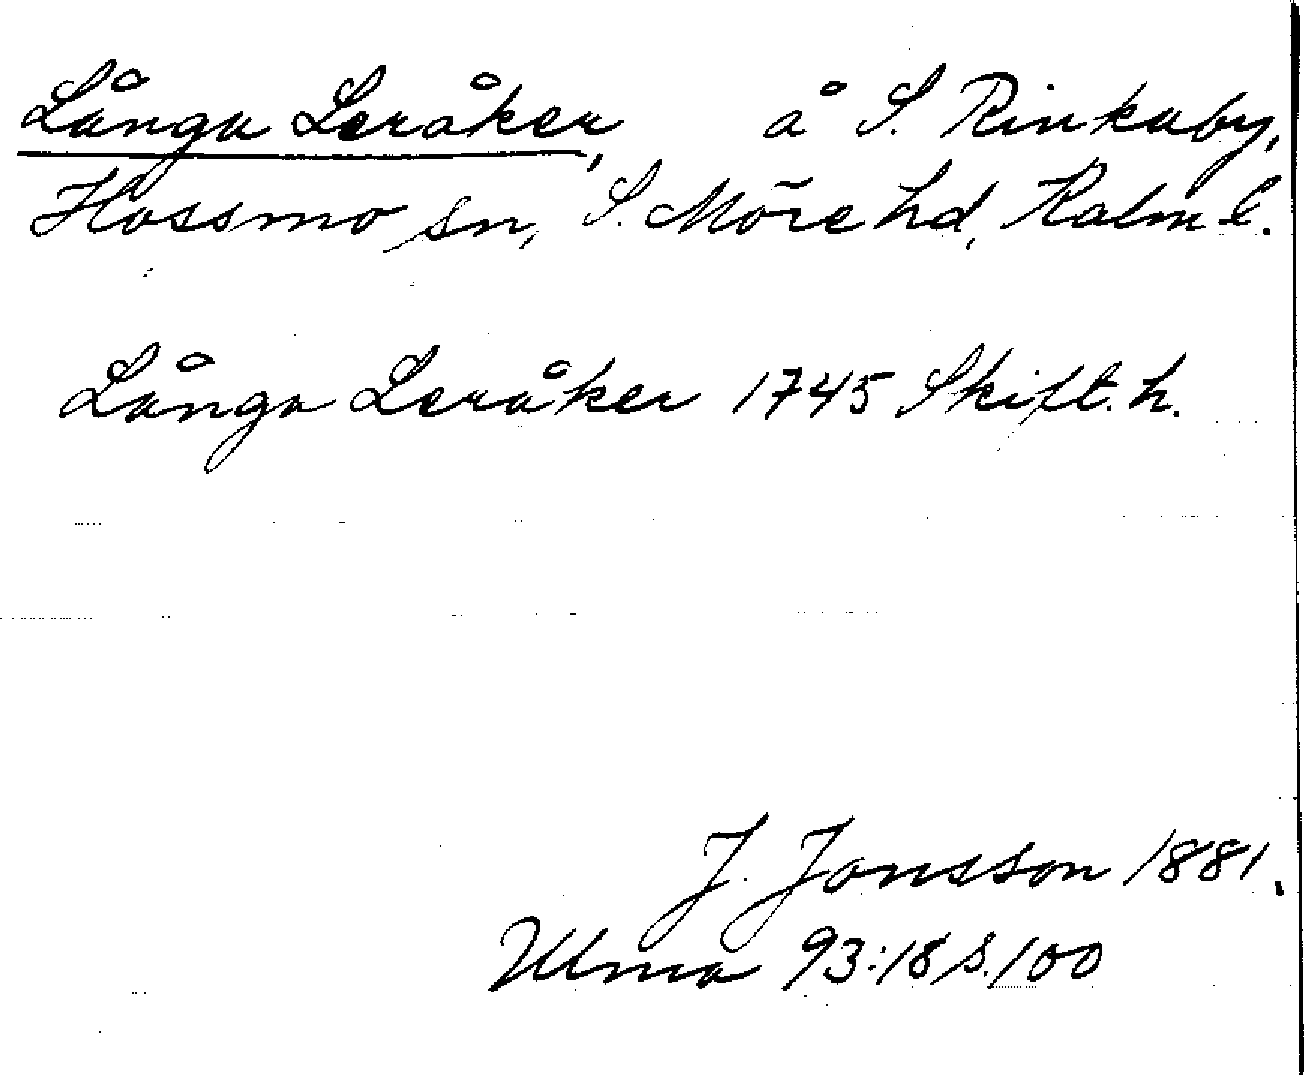 Långa Leråker, å S. Rinkaby,
Hossmo sn, S. Möre hd, Kalm l.
Långa Leråker 1745 Skift. h.
J. Jonsson 1881.
Ulma 93:18 s. 100